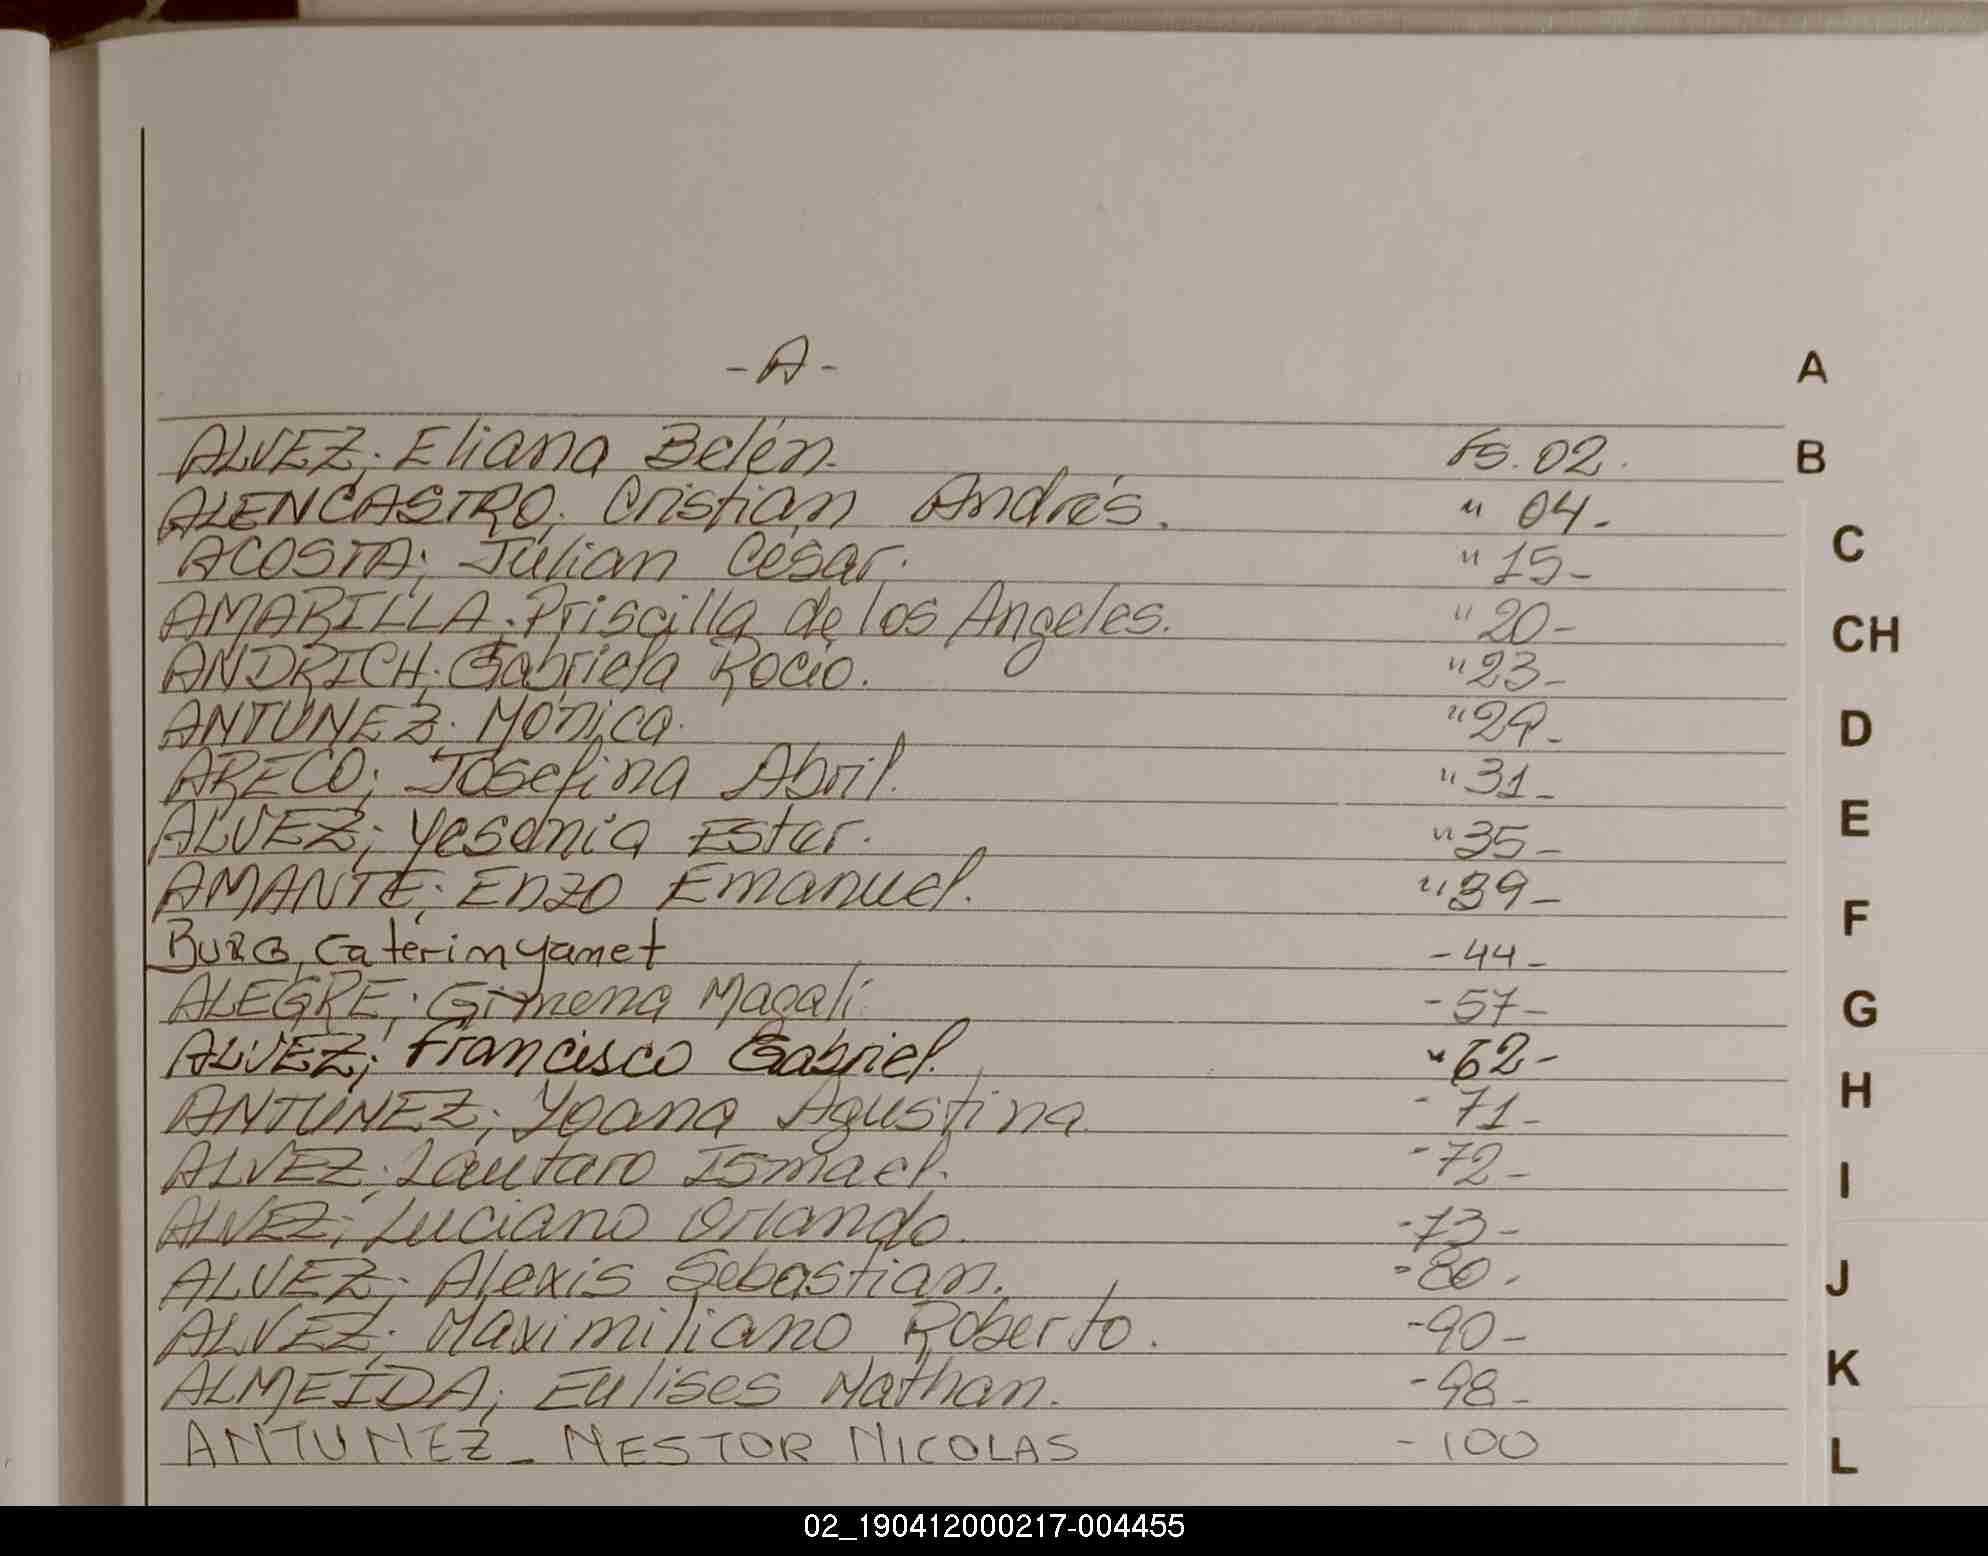 - A -
ALVEZ; Eliana Belén. Fs. 02.
ALENCASTRO; Cristian Andrés. " 04-
ACOSTA; Julian César. " 15-
AMARILLA; Priscilla de los Angeles. " 20-
ANDRICH; Gabriela Rocío. " 23-
ANTUNEZ; Mónica. " 29-
ARECO; Josefina Abril. " 31-
ALVEZ; Yesania Ester. " 35-
AMANTE; Enzo Emanuel. " 39-
Caterin yanet - 44-
ALEGRE; Gimena Magalí - 57-
ALVEZ; Francisco Gabriel. " 62-
ANTUNEZ; Yoana Agustina - 71-
ALVEZ; Lautaro Ismael. - 72-
ALVEZ; Luciano Orlando - 73-
ALVEZ; Alexis Sebastian. - 80-
ALVEZ; Maximiliano Roberto. - 90-
ALMEIDA; Eulises Nathan. - 98-
ANTUNEZ - NESTOR NICOLAS - 100
A
B
C
CH
D
E
F
G
H
I
J
K
L
02_190412000217-004455